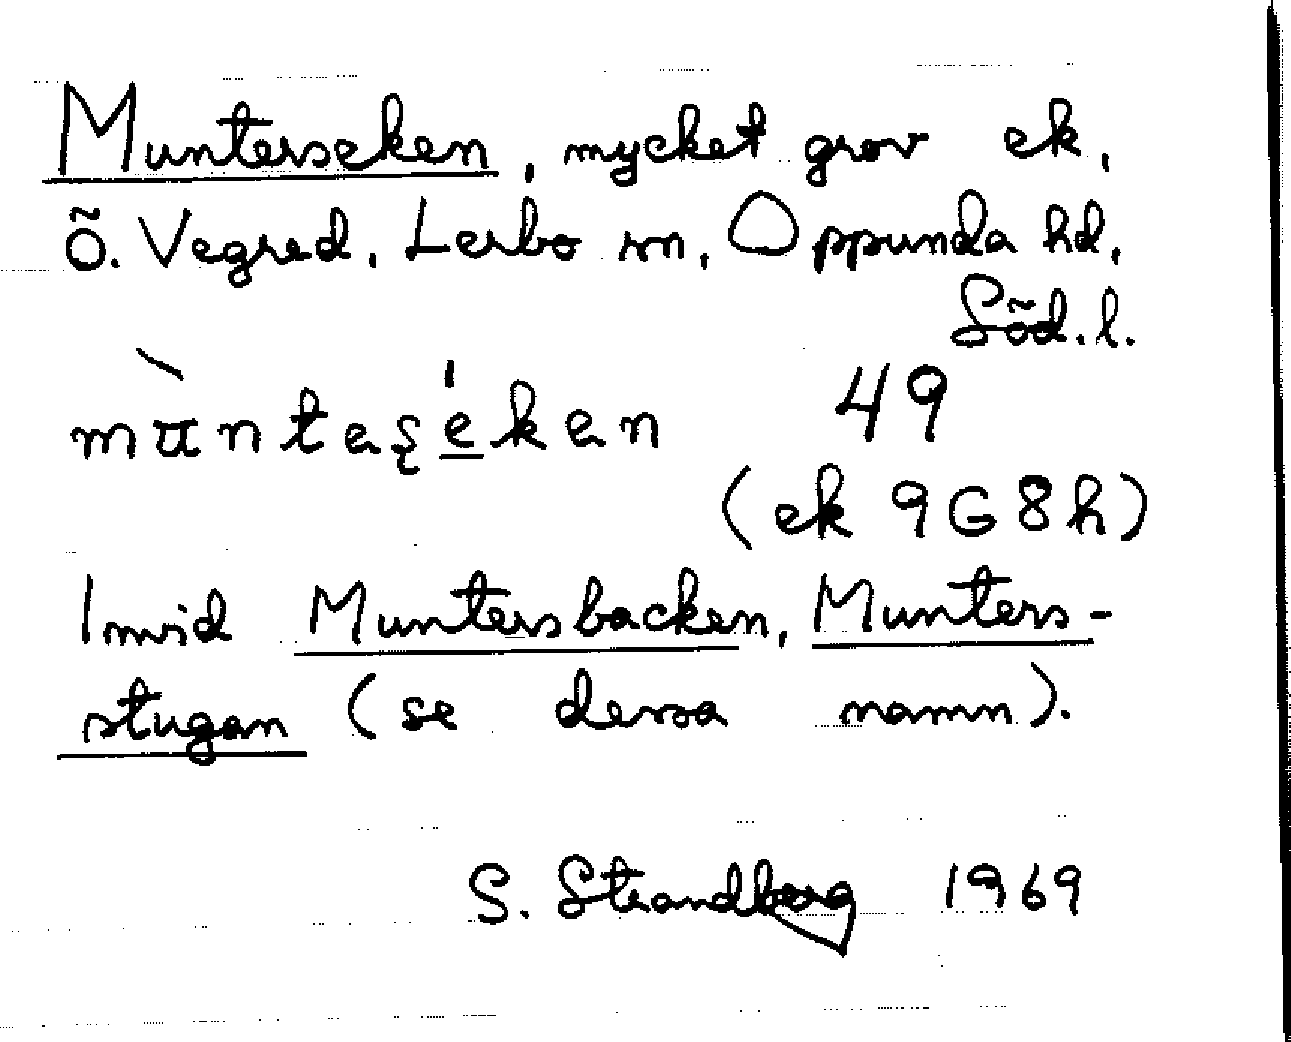 Munterseken, mycket grov ek,
Ö. Vegred, Lerbo sn, Oppunda hd,
Söd.l.
mùntaşéken 49
(ek 9G8h)
Invid Muntersbacken, Munters-
stugan (se dessa namn).
S. Strandberg 1969